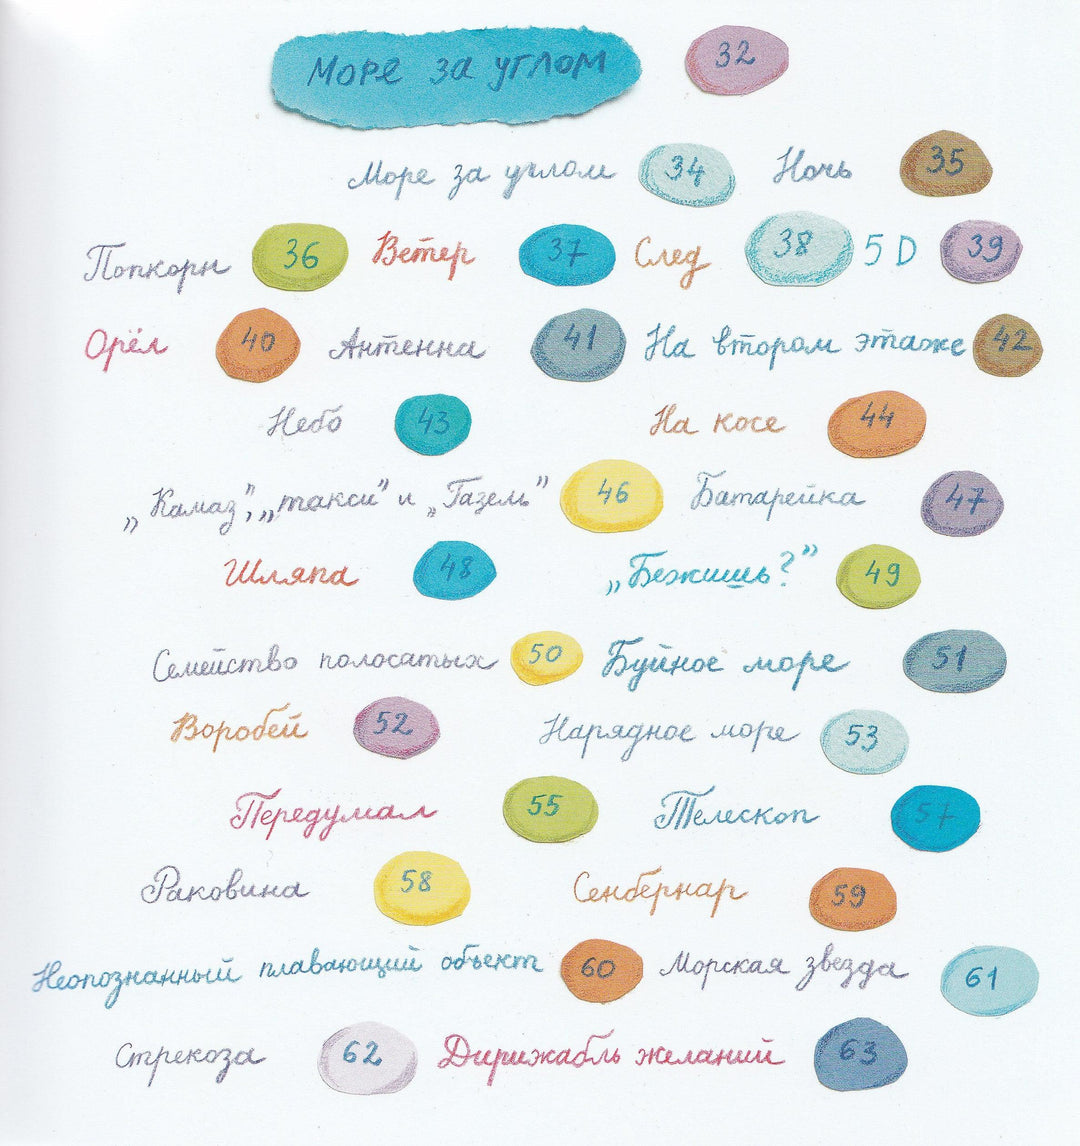 Море за углом 32
Море за углом 34 Ночь 35
Попкорн 36 Ветер 37 След 38 5D 39
Орёл 40 Антенна 41 На втором этаже 42
Небо 43 На косе 44
„Камаз”, „такси” и „Газель” 46 Батарейка 47
Шляпа 48 „Бежишь?” 49
Семейство полосатых 50 Буйное море 51
Воробей 52 Нарядное море 53
Передумал 55 Телескоп 57
Раковина 58 Сенбернар 59
Неопознанный плавающий объект 60 Морская звезда 61
Стрекоза 62 Дирижабль желаний 63